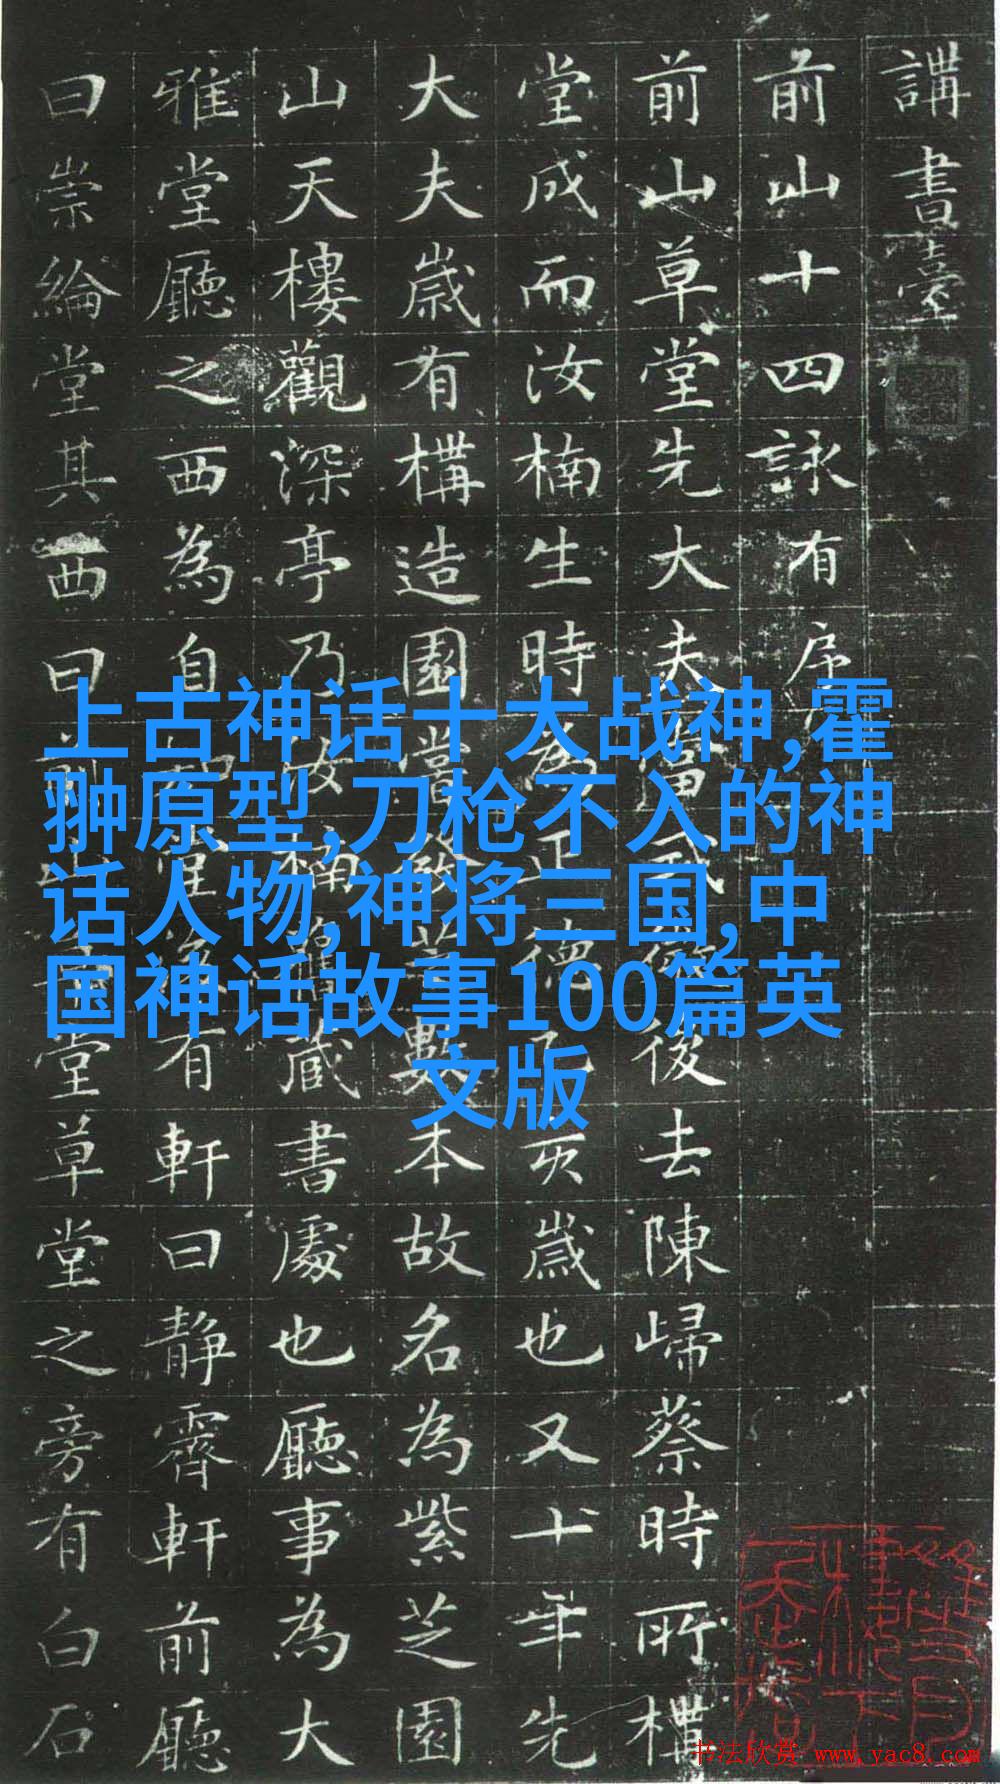 講書臺
前山十四詠有序
前山草堂先大夫後去陳歸蔡時所
堂成而汝楠生時為正德乙亥歲也又十年先
大夫歲有構造園嘗發芝數本故名為紫芝園
山天樓觀深亭乃汝楠藏書處也廳事為大
雅堂廳之西為自有軒曰靜霽軒前廳
曰崇綸堂其西曰前山草堂草堂之旁有白石
上古神话十大战神,霍
翀原型,刀枪不入的神
话人物,神将三国,中
国神话故事100篇英
文版
书法欣赏 www.yac8.com